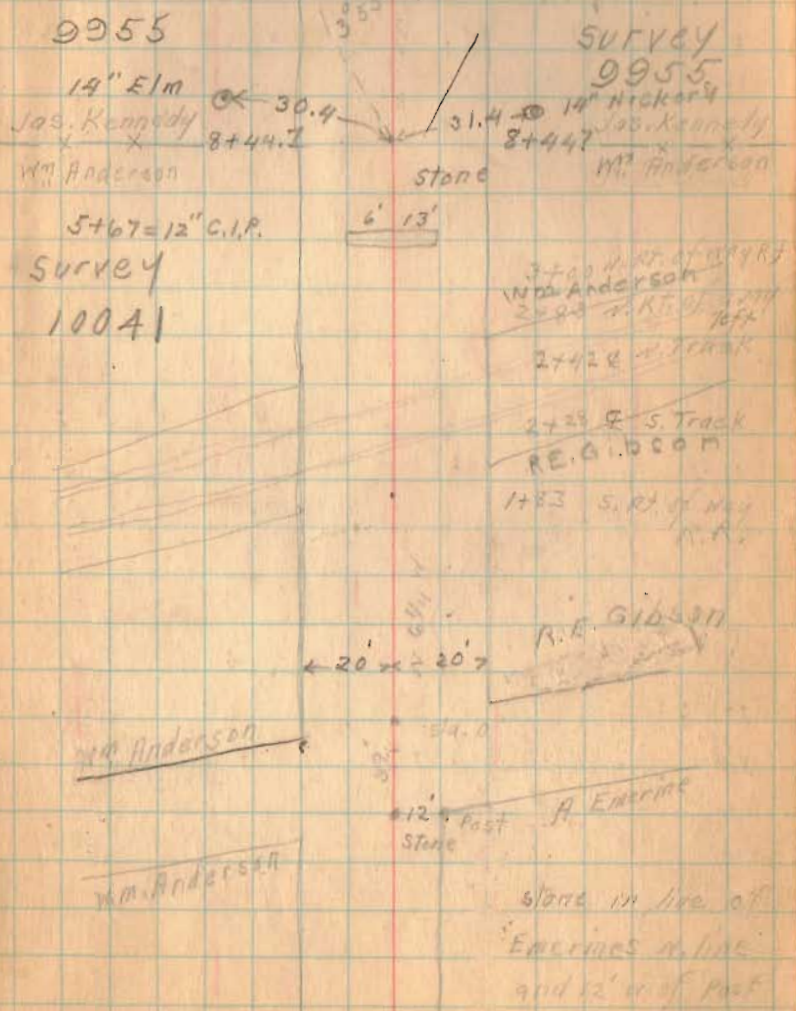 9955
Survey
9955
14" Elm
30.4
31.4
14" Hickory
Jas. Kennedy
8+44.7
8+447
Jas. Kennedy
Wm Anderson
Stone
Wm Anderson
5+67=12" C.I.P.
6' 13'
Survey
10041
3+00 N. Rt. of Way Rt
Wm. Anderson
2+88 N. Rt. of Way
left
2+42 ℄ N. Track
2+28 ℄ S. Track
R.E. Gibson
1+83 S. Rt. of Way
R.R.
R.E. Gibson
20' 20'
Wm Anderson
Sta. 0
A Emerine
12' Post
Stone
Wm. Anderson
stone in line of
Emerines N. line
and 12' w of Post